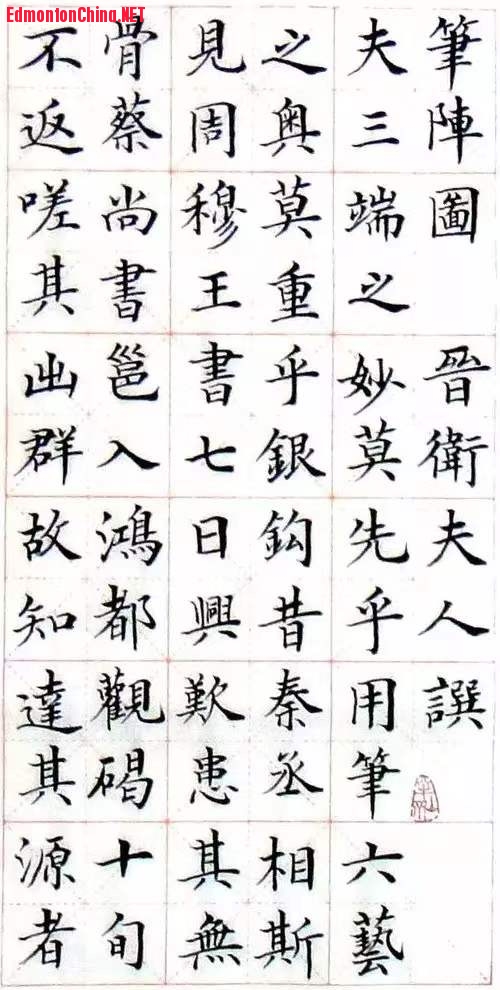 EdmontonChina.NET
筆陣圖 晉衛夫人譔
夫三端之妙莫先乎用筆六藝
之奧莫重乎銀鈎昔秦丞相斯
見周穆王書七日興歎患其無
骨蔡尚書邕入鴻都觀碣十旬
不返嗟其出群故知達其源者